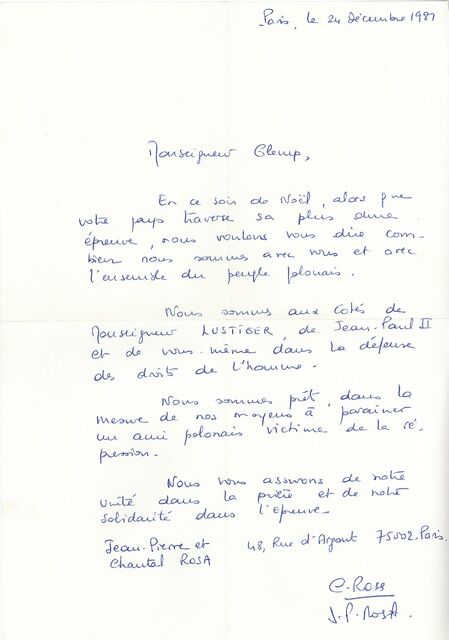 Paris, le 24 Décembre 1981
Monseigneur Glemp,
En ce soir de Noël, alors que
votre pays traverse sa plus dure
épreuve, nous voulons vous dire com-
bien nous sommes avec vous et avec
l'ensemble du peuple polonais.
Nous sommes aux côtés de
Monseigneur LUSTIGER, de Jean-Paul II
et de vous-même dans la défense
des droits de l'homme.
Nous sommes prêt, dans la
mesure de nos moyens à parainer
un ami polonais victime de la ré-
pression.
Nous vous assurons de notre
unité dans la prière et de notre
solidarité dans l'épreuve.
Jean-Pierre et 48, Rue d'Argout 75002 Paris.
Chantal ROSA
C. Rosa
J.P. ROSA.